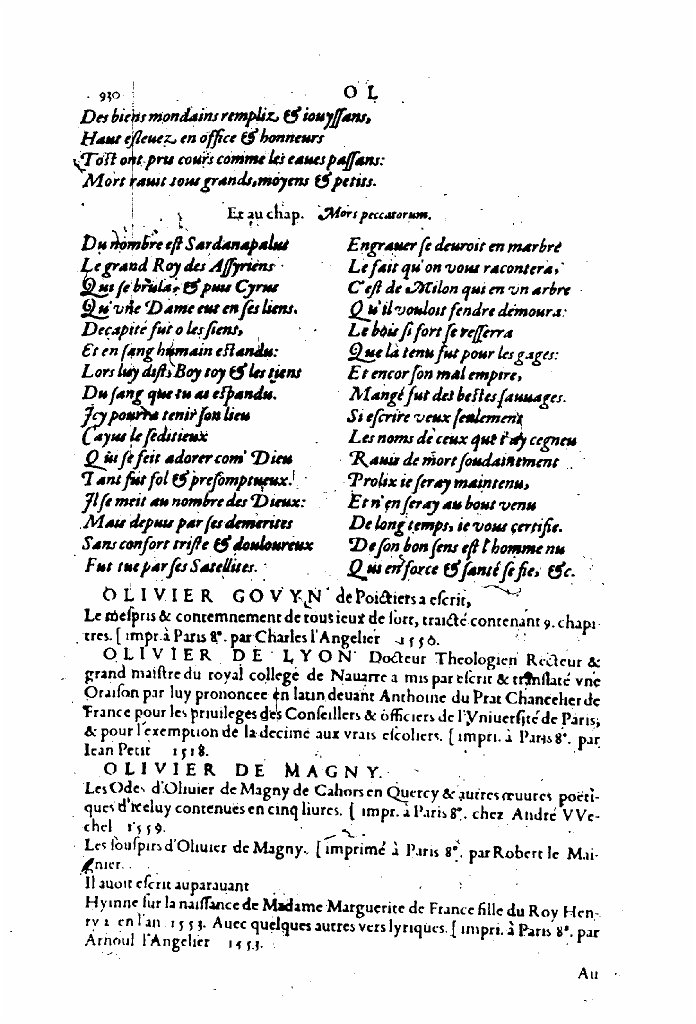 930 O L
Des biens mondains rempliz, & iouyssans,
Haut esleuez en office & honneurs
Tost ont pris cours comme les eaues passans:
Mort rauit tous grands, moyens & petits.
Et au chap. Mors peccatorum.
Du nombre est Sardanapalus
Le grand Roy des Assyriens
Qui se brula, & puis Cyrus
Qu'vne Dame eut en ses liens.
Decapité fut o les siens,
Et en sang humain estandu:
Lors luy dist, Boy toy & les tiens
Du sang que tu as espandu.
Icy pourra tenir son lieu
Cayus le seditieux
Qui se feit adorer com' Dieu
Tant fut fol & presomptueux.
Il se meit au nombre des Dieux:
Mais depuis par ses demerites
Sans confort triste & douloureux
Fut tué par ses Satellites.
Engrauer se deuroit en marbre
Le fait qu'on vous racontera,
C'est de Milon qui en vn arbre
Qu'il vouloit fendre démoura:
Le bois si fort se resserra
Que là tenu fut pour les gages:
Et encor son mal empire,
Mangé fut des bestes sauuages.
Si escrire veux seulement
Les noms de ceux que i'ay cogneu
Rauis de mort soudainement
Prolix ie seray maintenu,
Et n'en seray au bout venu
De long temps, ie vous certifie.
De son bon sens est l'homme nu
Qui en force & santé se fie, &c.
OLIVIER GOVYN de Poictiers a escrit,
Le mespris & contemnement de tous ieux de sort, traicté contenant 9. chapi
tres. [impr. à Paris 8°. par Charles l'Angelier 1550.
OLIVIER DE LYON Docteur Theologien Recteur &
grand maistre du royal college de Nauarre a mis par escrit & translaté vne
Oraison par luy prononcee en latin deuant Anthoine du Prat Chancelier de
France pour les priuileges des Conseillers & officiers de l'Vniuersité de Paris,
& pour l'exemption de la decime aux vrais escoliers. [impri. à Paris 8°. par
Iean Petit 1518.
OLIVIER DE MAGNY.
Les Odes d'Oliuier de Magny de Cahors en Quercy & autres œuures poëti-
ques d'iceluy contenues en cinq liures. [impr. à Paris 8°. chez André VVe-
chel 1559.
Les souspirs d'Oliuier de Magny. [imprimé à Paris 8°. par Robert le Mai-
gnier.
Il auoit escrit auparauant
Hymne sur la naissance de Madame Marguerite de France fille du Roy Hen-
ry 2 en l'an 1553. Auec quelques autres vers lyriques. [impri. à Paris 8°. par
Arnoul l'Angelier 1553.
Au